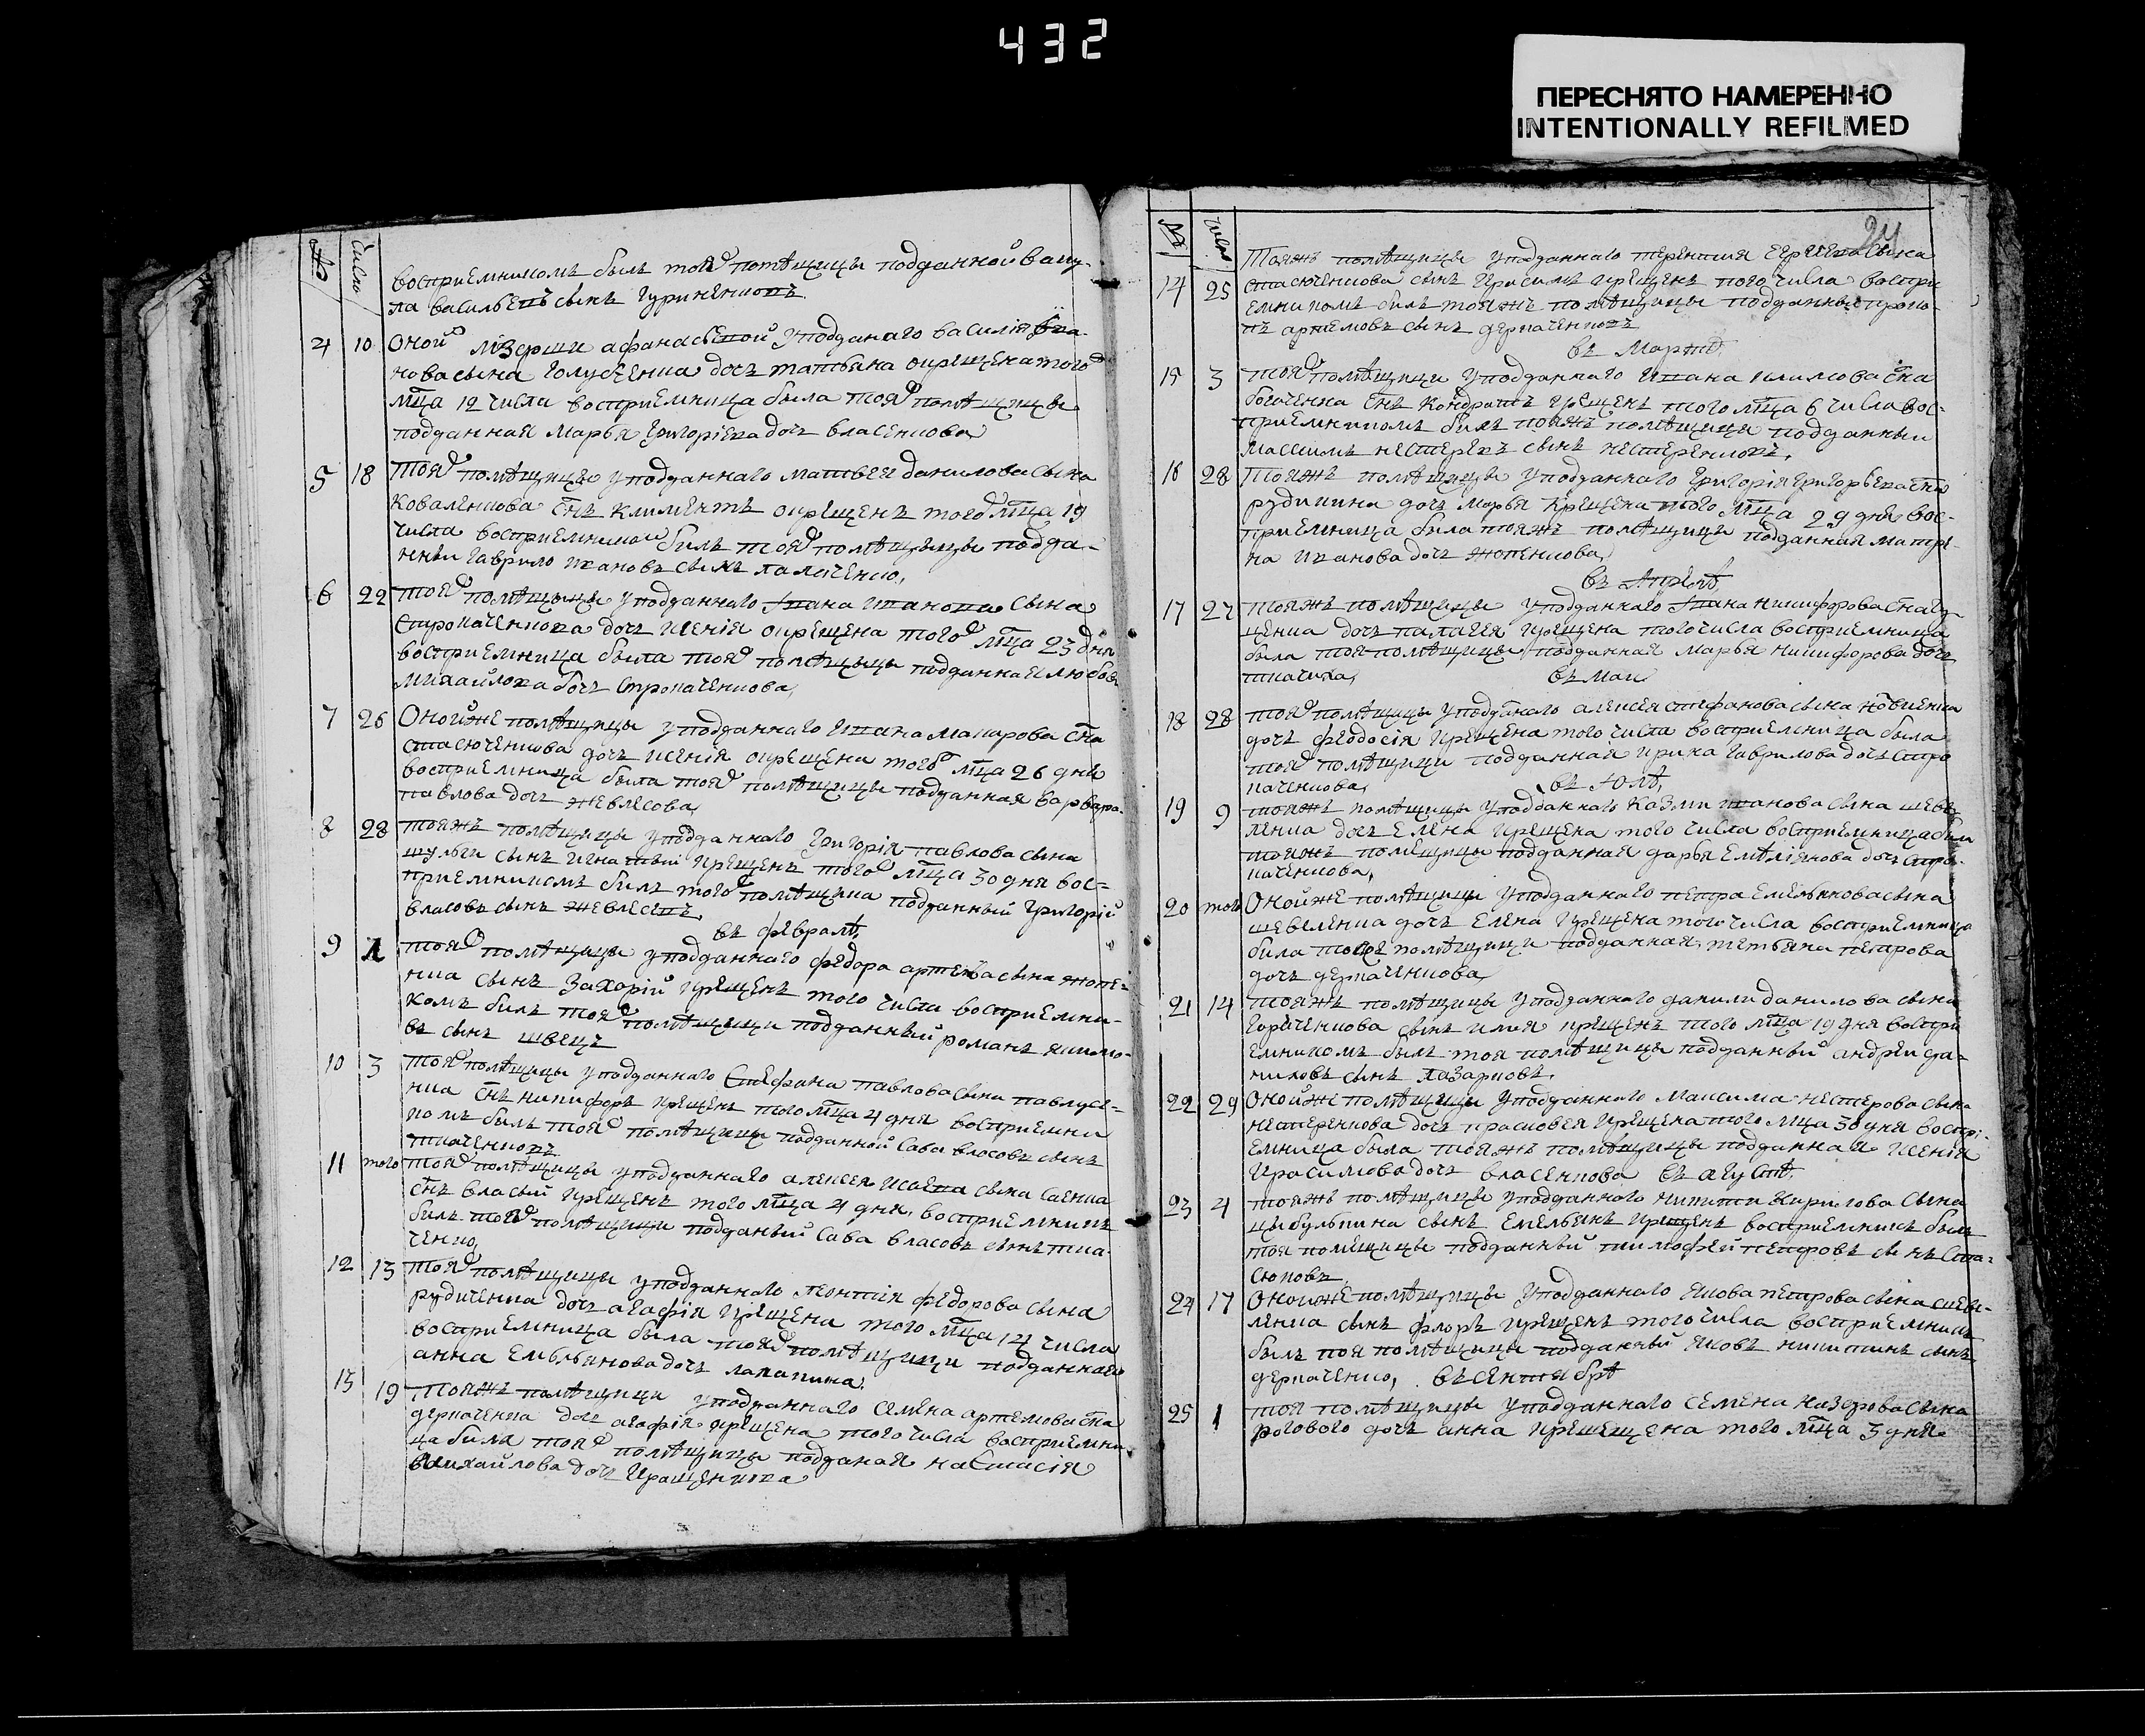 432
ПЕРЕСНЯТО НАМЕРЕННО
INTENTIONALLY REFILMED
№ Число
восприемникомъ былъ тояж помѣщицы подданной ваку-
ла васильевъ сынъ гуриненковъ
4 10 Оной афанасьевой уподданаго василія ива-
нова сына голубченка дочь татьяна окрещена того
мца 12 числа восприемница была тояж помѣщицы
подданная марья григоріева дочь власенкова
5 18 тояж помѣщицы уподданнаго матвея данилова сына
коваленкова снъ климентъ окрещенъ того мца 19
числа восприемником былъ тояж помѣщицы подда-
нныи гаврило ивановъ сынъ
6 22 тояж помѣщицы уподданнаго ивана иванова сына
строкаченкова дочь ксенія окрещена того мца 23 дня
восприемница была тояж помѣщицы подданная любовь
михайлова дочь строкаченкова
7 26 Онойже помѣщицы уподданнаго ивана макарова сна
стасюченкова дочь ксенія окрещена того мца 26 дня
восприемница была тояж помѣщицы подданная варвара
павлова дочь жевлесова
8 28 тояжъ помѣщицы уподданнаго григорія павлова сына
шульги сынъ игнатій крещенъ того мца 30 дня вос-
приемникомъ былъ того помѣщика подданный григорій
власовъ сынъ
въ февралѣ
9 1 тояж помѣщицы уподданнаго федора артемова сына жопе-
нка сынъ захарій крещенъ того числа восприемни-
комъ былъ тояж помѣщицы подданный романъ якимо-
въ сынъ швецъ
10 3 тояж помѣщицы уподданнаго стефана павлова сына павлусе-
нка снъ никифоръ крещенъ того мца 4 дня восприемни
комъ былъ тояж помѣщицы подданной сава власовъ сынъ
ткаченковъ
11 того тояж помѣщицы уподданнаго алексея исаева сына саенка
снъ власий крещенъ того мца 4 дня восприемникъ
былъ тояж помѣщицы подданый сава власовъ сынъ тка
ченко
12 13 тояж помѣщицы уподданнаго леонтия федорова сына
рудиченка дочь агафія крещена того мца 14 числа
восприемница была тояж помѣщицы подданная
анна емельянова дочь лапапина
13 19 тояжъ помѣщицы уподданнаго семена артемова сна
деркаченка дочь агафія крещена того числа восприемни
ца была тояж помѣщицы подданая настасія
михайлова дочь
№ число 24
тояжъ помѣщицы уподданнаго терентия сына
14 25 стасюченкова сынъ крещенъ того числа воспри
емникомъ былъ тояжъ помѣщицы подданные проко-
пъ артемовъ сынъ деркаченковъ
въ мартѣ
15 3 тояж помѣщицы уподданнаго ивана климова сна
богаченка снъ кондратъ крещенъ того мца 6 числа вос-
приемникомъ былъ тояжъ помѣщицы подданныи
максимъ нестеревъ сынъ нестеренковъ
16 28 тояжъ помѣщицы уподданнаго григорія григорьева сна
рудикина дочь марья крещена того мца 29 дня вос-
приемница была тояжъ помѣщицы подданная матре
на иванова дочь жопенкова
въ апрелѣ
17 27 тояжъ помѣщицы уподданнаго ивана никифорова сна гу-
ценка дочь палагея крещена того числа восприемница
была тоя помѣщицы подданная марья никифорова дочь
ткачика
въ маи
18 28 тояж помѣщицы уподданаго алексея стефанова сына новиенка
дочь феодосія крещена того числа восприемница была
тояж помѣщицы подданная ирина гаврилова дочь стро
каченкова
въ юлѣ
19 9 тояжъ помѣщицы уподданнаго казми иванова сына шеве-
ленка дочь елена крещена того числа восприемница была
тояжъ помещицы подданная дарья емелиянова дочь стро-
каченкова
20 того Онойже помѣщицы уподданнаго петра емельянова сына
шевеленка дочь елена крещена того числа восприемница
была тояже помѣщицы подданная татьяна петрова
дочь деркаченкова
21 14 тояжъ помѣщицы уподданнаго данили данилова сына
сынъ илия крещенъ того мца 19 дня воспри
емникомъ былъ тоя помѣщицы подданный андреи да-
ниловъ сынъ лазарковъ
22 29 Онойже помѣщицы уподданнаго максима нестерова сына
нестеренкова дочь прасковея крещена того мца 30 дня воспри-
емница была тояжъ помѣщицы подданная ксенія
красимова дочь власенкова въ августѣ
23 4 тояжъ помѣщицы уподданнаго никити кирилова сына
цыбулькина сынъ емельянъ крещенъ восприемникъ былъ
тоя помещицы подданный тимофей петровъ сынъ ста-
сюковъ
24 17 Онойже помѣщицы уподданнаго якова петрова сына шеве-
ленка сынъ флоръ крещенъ того числа восприемникъ
былъ тоя помѣщицы подданный яковъ никитинъ сынъ
деркаченко въ сентябрѣ
25 1 тоя помѣщицы уподданнаго семена назарова сына
рогового дочь анна крещещена того мца 3 дня